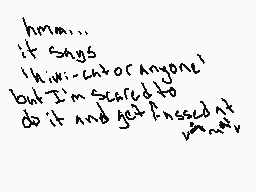 hmm...
it says
'hiwi-cat or anyone'
but I'm scared to
do it and get fussed at